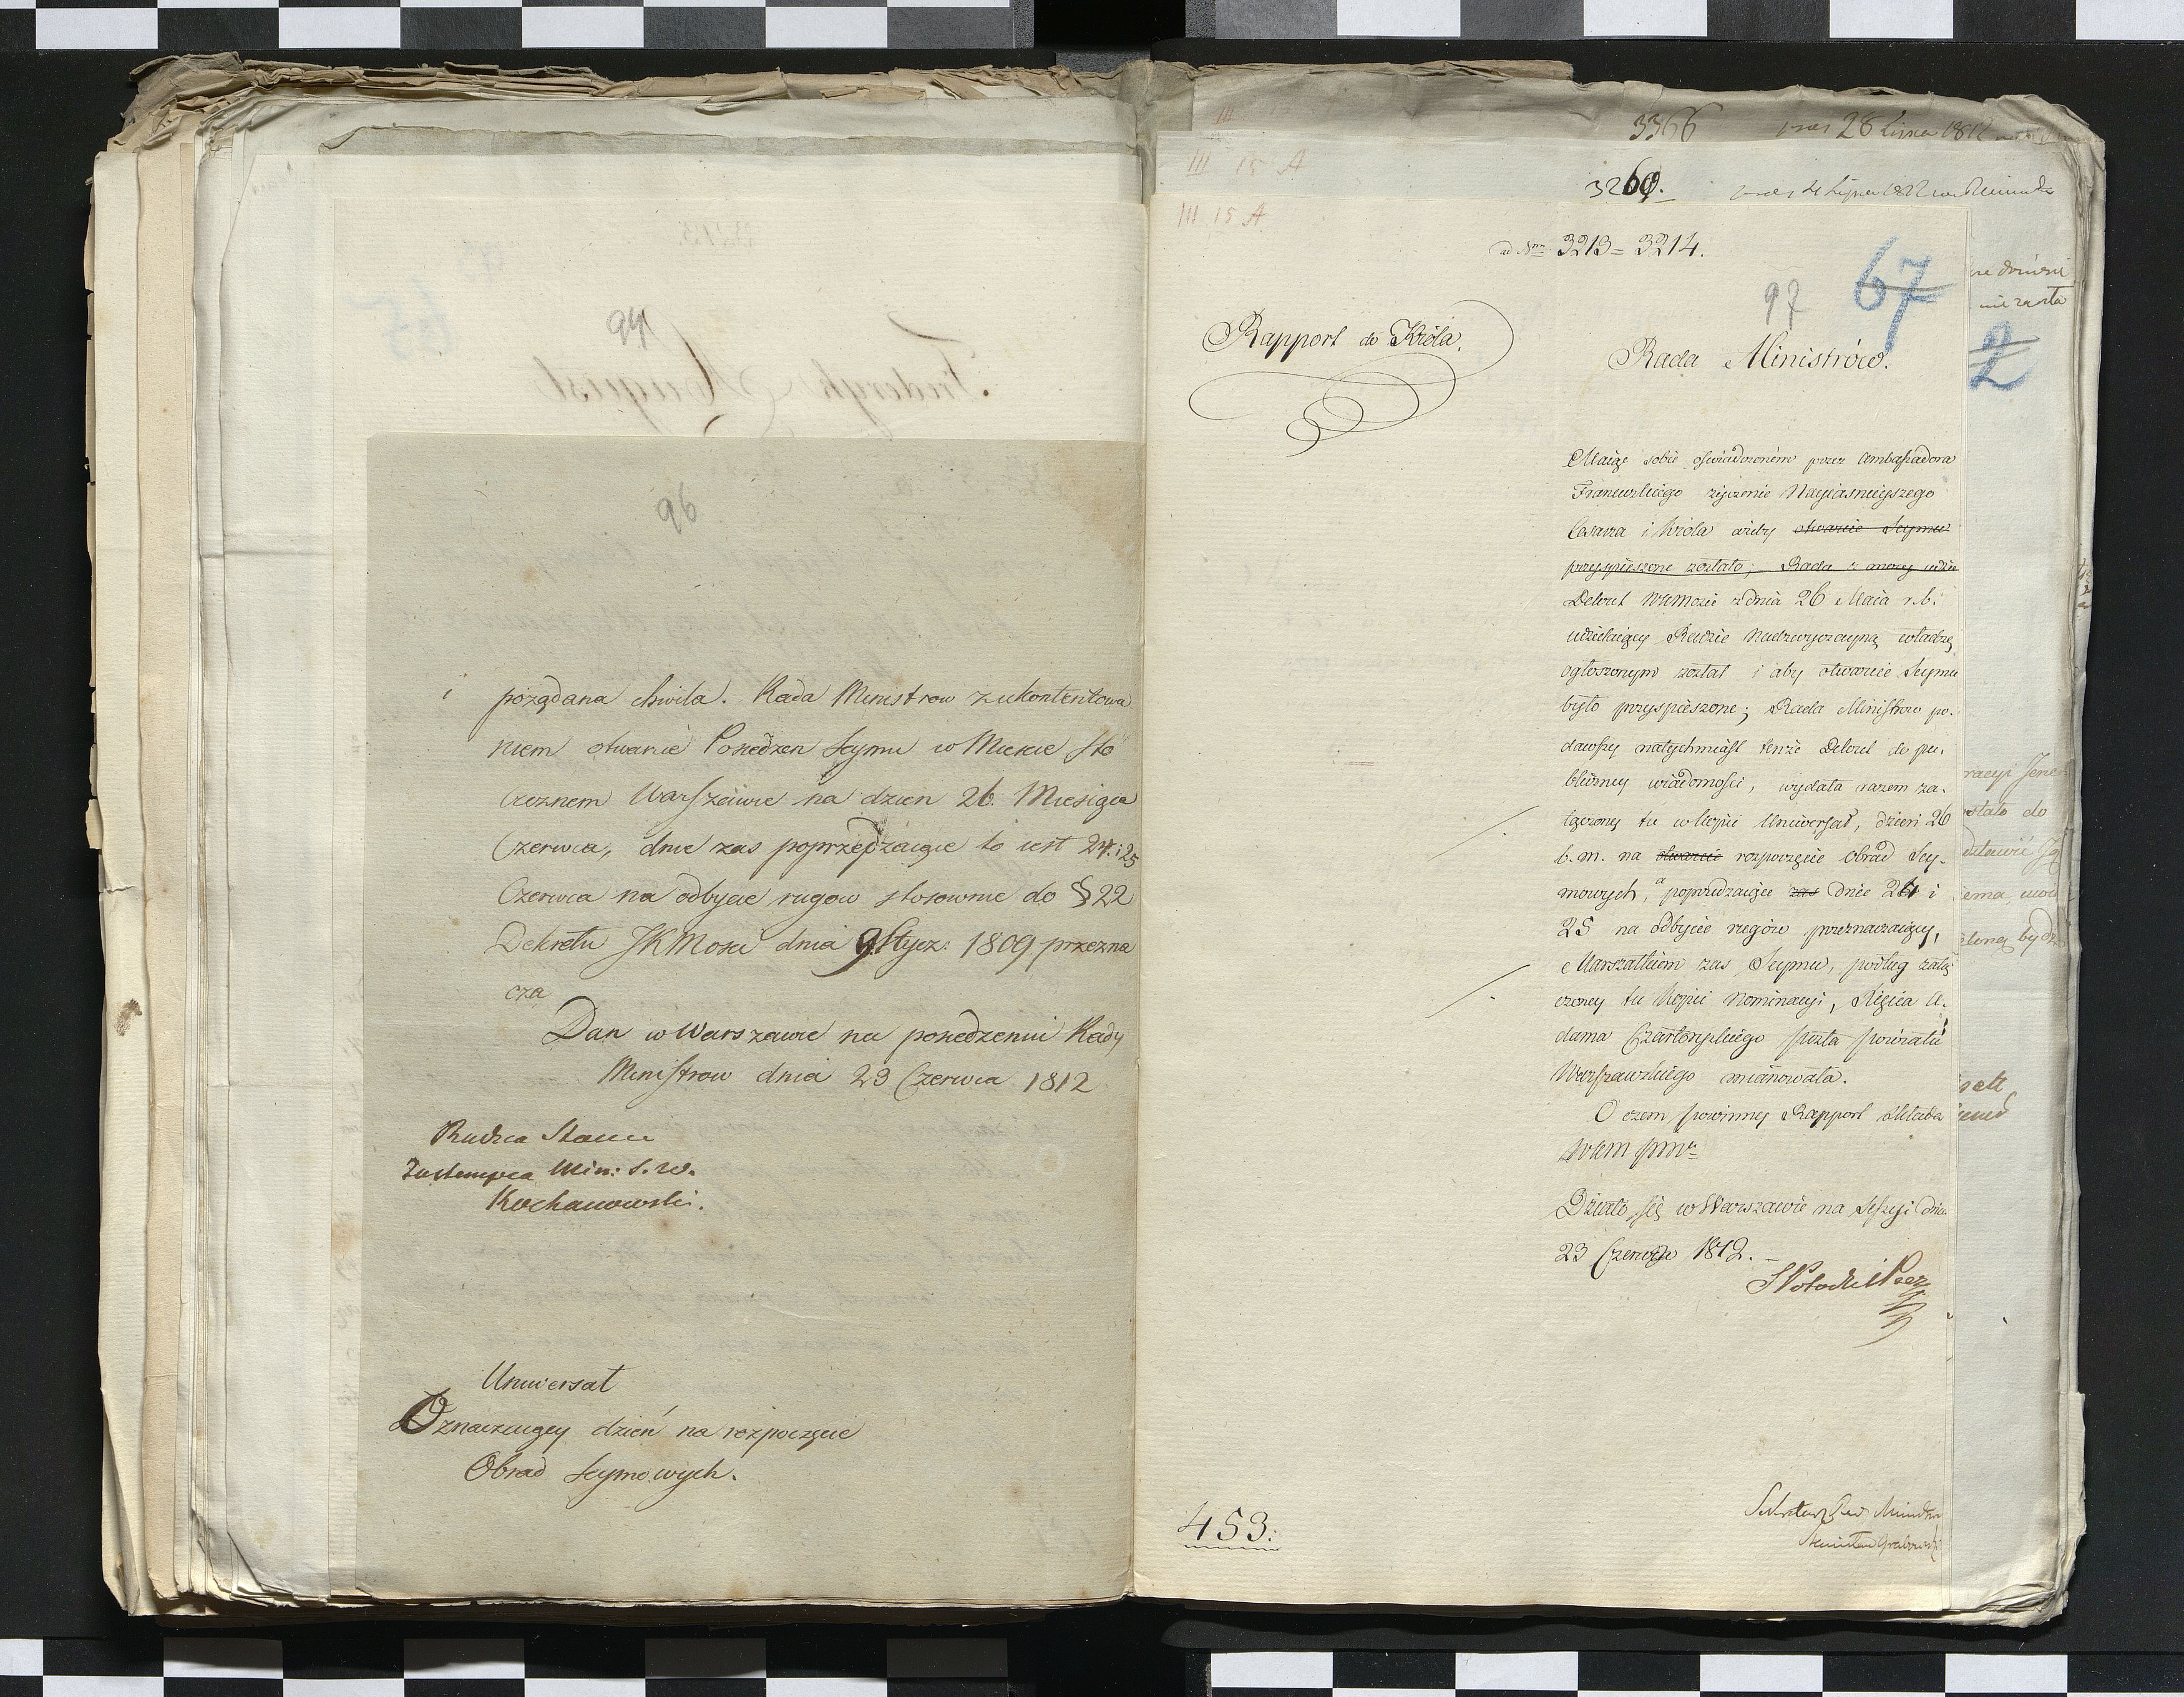 94
96
i pożądana chwila. Rada Ministrow z ukontentowa
niem otwarcie Posiedzen Seymu w Miescie sto
łecznem Warszawie na dzien 26. Miesiąca
Czerwca, dnie zas poprzedzaiące to iest 24. i 25
Czerwca na odbycie rugow stosownie do § 22
Dekretu JKMosci dnia 9. Stycz: 1809 przezna
cza
Dan w Warszawie na posiedzeniu Rady
Ministrow dnia 23 Czerwca 1812
Radca Stanu
Zastempca Min: S. W.
Kochanowski.
Uniwersał
Oznaczaiący dzień na rozpoczęcie
Obrad Seymowych.
III
3366 28 Lipca 1812
III 15 A
3260.
III 15 A
ad Nrm 3213 = 3214.
97 67
2
Rapport do Króla.
Rada Ministrów.
Maiąc sobie oświadczoném przez Ambassadora
Francuzkiego życzenie Nayiaśnieyszego
Cesarza i Króla ażeby otwarcie Seymu
przyspieszone zostało; Rada z mocy
Dekret WKMości z dnia 26 Maia r.b.
udzielaiący Radzie Nadzwyczayną władzę,
ogłoszonym został i aby otwarcie Seymu
było przyspieszone; Rada Ministrow po-
dawszy natychmiast tenże Dekret do pu-
bliczney wiadomości, wydała razem za-
łączony tu w kopii Uniwersał, dzień 26
b. m. na otwarcie rozpoczęcie Obrad Sey-
mowych, a poprzedzaiące zas dnie 24 i
25 na odbycie rugów przeznaczaiący,
Marszałkiem zas Seymu, podług załą-
czoney tu kopii Nominacyi, Xięcia A-
dama Czartoryskiego Posła Powiatu
Warszawskiego mianowała.
O czem powinny Rapport składa
WKM
Działo się w Warszawie na Sessyi dnia
23 Czerwca 1812.
S Potocki Prez
453.
Sekretarz Rad Ministrow
Stanisław Grabowski